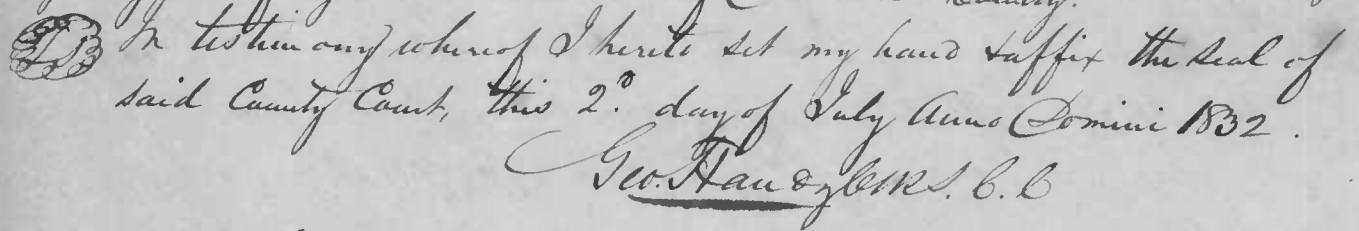 County.
In testimony whereof I hereto set my hand & affix the seal of
said County Court, this 2d. day of July Anno Domini 1832.
Geo. Handy Clk S. C. C